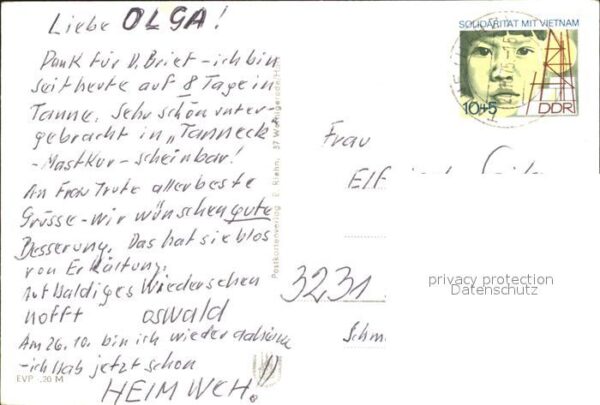 Liebe OLGA!
Dank für D. Brief - ich bin
seit heute auf 8 Tage in
Tanne. Sehr schön unter-
gebracht in „Tanneck"
- Mastkur - scheinbar!
An Frau Trute allerbeste
Grüsse - wir wünschen gute
Besserung. Das hat sie blos
von Erkältung.
Auf baldiges Wiedersehen
hofft oswald
Am 26.10. bin ich wieder daheim
- ich hab jetzt schon
HEIMWEH.!!
EVP -,20 M
Postkartenverlag E. Riehn, 37 Wernigerode/H
SOLIDARITÄT MIT VIETNAM
10+5
DDR
Frau
3231
Schm
privacy protection
Datenschutz